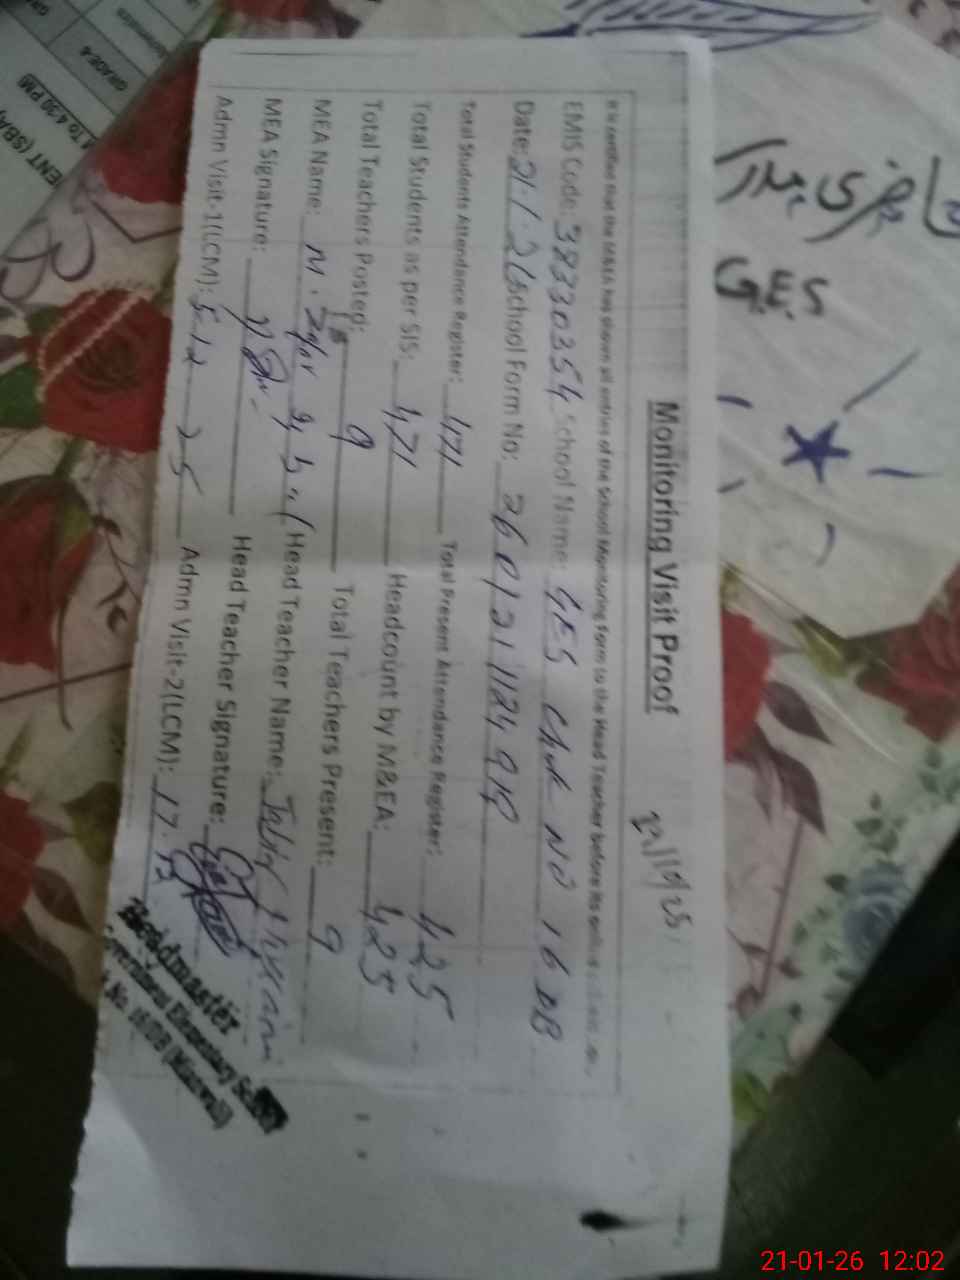 Monitoring Visit Proof
It is certified that the M&EA has shown all entries of the School Monitoring Form to the Head Teacher before its online
EMIS Code: 38330354 School Name: GES Chak NO 16 DB
Date: 21.1.26 School Form No: 260121124919
Total Students Attendance Register: 471 Total Present Attendance Register: 425
Total Students as per SIS: 471 Headcount by M&EA: 425
Total Teachers Posted: 9 Total Teachers Present: 9
MEA Name: M. Zafar Head Teacher Name:
MEA Signature: Head Teacher Signature:
Admn Visit-1(LCM): 5-12-25 Admn Visit-2(LCM): 17.
Headmaster
Government Elementary School
No. 16/DB (Mianwali)
G.E.S
ENT (SBA)
To 4:30 PM)
GRADE-4
21-01-26 12:02